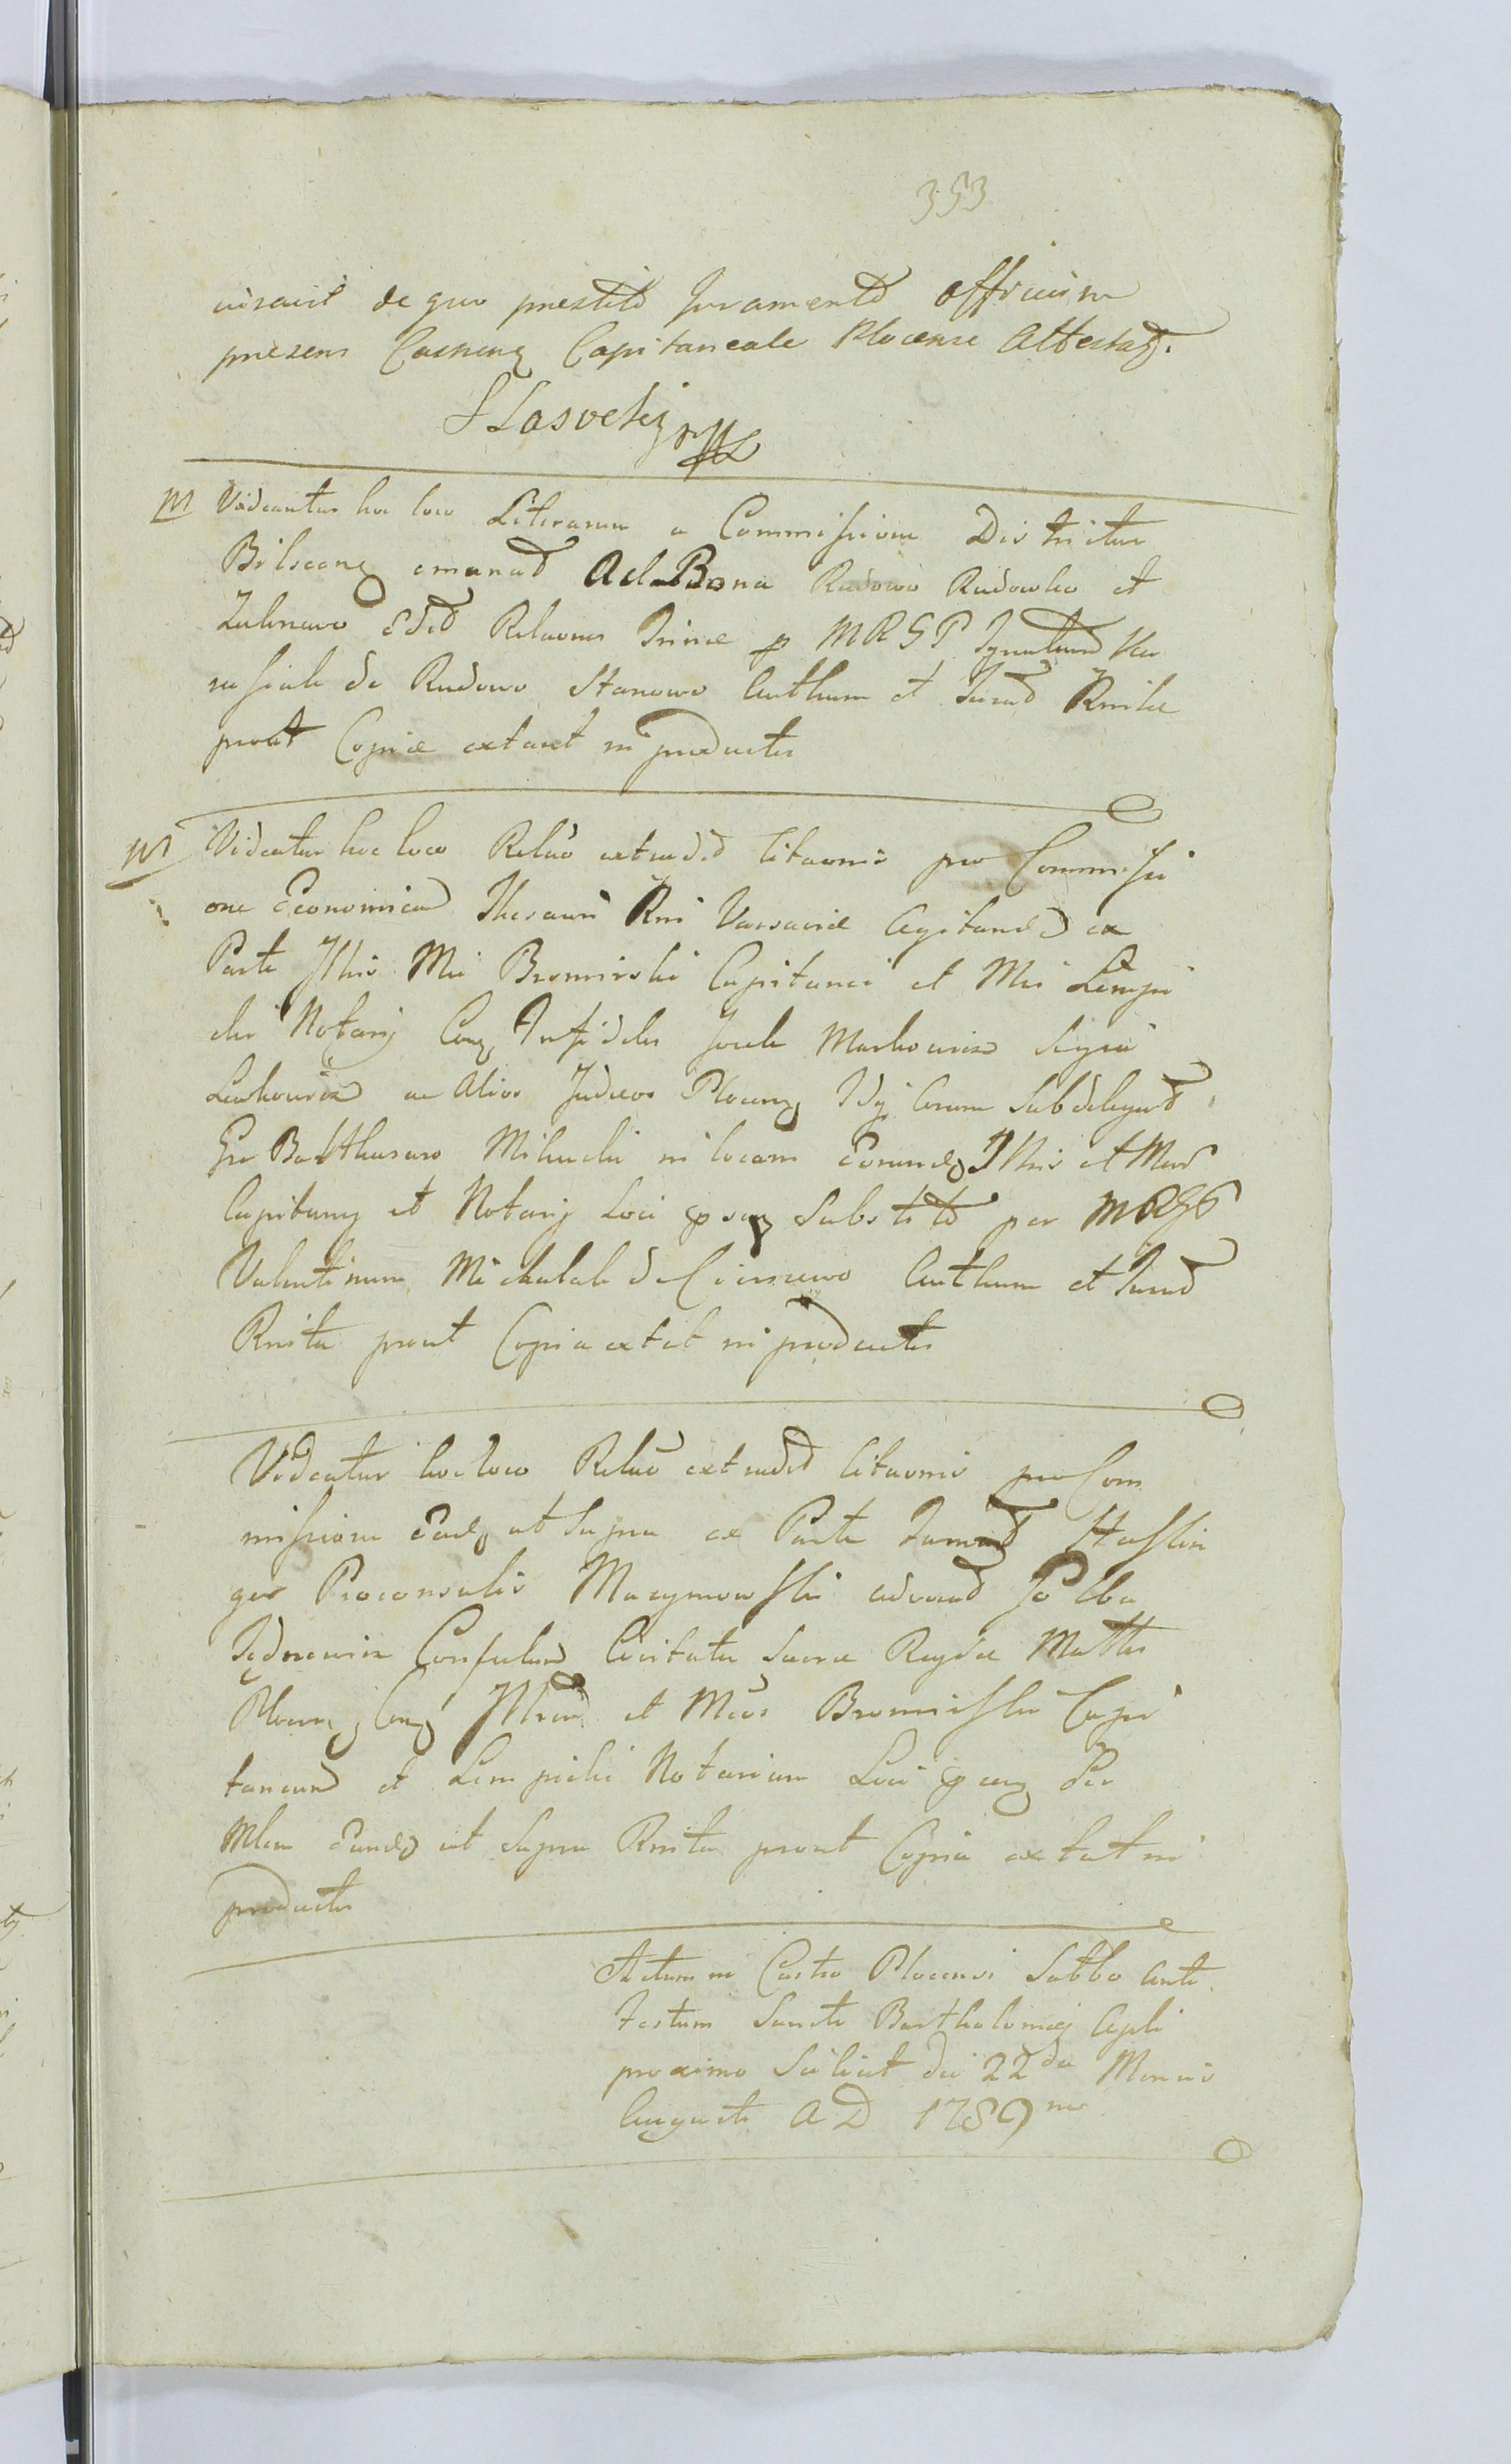 353
iuravit de quo prestito Juramento Officium
presens Castren Capitaneale Plocense Attestat.
M Videantur hoc loco Literarum a Commissione Districtus
Bilscen emanat Ad Bona Rudowo Rudowko et
Edit Relaones Trinae p MRGP Ignatium
de Rudowo Stanowo Authum et Jurat Rnitae
prout Copiae extant in productis
M Videatur hoc loco Relao extradit Citaonis pro Commissi
one Economica Thesauri Rni Varsaviae Agitand ex
Parte Illris Mci Bromirski Capitanei et Mci Lempi
cki Notarij Con Infideles Josek Markowicz
Lewkowicz ac Alios Judaeos Plocen Idq Coram Subdelegat
Gro Balthasaro Milucki in locum Eorund Illris et Mcor
Capitanej et Notarij Loci psen Substit per MRGP
Valentinum Michalak de Ciersewo Authum et Jurat
Rnita prout Copia extat in productis
Videatur hoc loco Relao extradit Citaonis pro Com
missione Ead ut Supra ex Parte Famat Haslin
ger Proconsulis Maczymowski advocat
Consulum Civitatis Sacrae Regiae Mattis
Plocen Con Illrem et Mcos Bromirski Capi
taneum et Lempicki Notarium Loci psen Per
Mlem Eund ut Supra Rnita prout Copia extat in
productis
Actum in Castro Plocensi Sabbo Ante
Festum Sancti Bartholomaei Apli
proximo Scilicet die 22da Mensis
Augusti A D 1789no